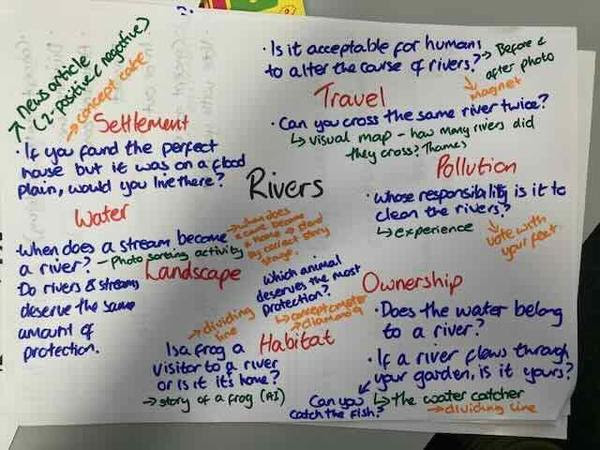 news article
(2-positive / negative)
→ concept cake
Settlement
• If you found the perfect
house but it was on a flood
plain, would you live there?
• Is it acceptable for humans
to alter the course of rivers?
→ Before &
after photo
→ magnet
Travel
• Can you cross the same river twice?
↳ visual map - how many rivers did
they cross? Thames
Rivers
Pollution
• Whose responsibility is it to
clean the rivers?
↳ experience
→ vote with
your feet.
Water
• When does a stream become
a river? - Photo sorting activity
Do rivers & streams
deserve the same
amount of
protection.
Landscape
→ when does
a cave become
a home → stand
by correct story
stage.
which animal
deserves the most
protection?
↳ conceptometer
→ diamond 9
→ dividing
line
Habitat
Is a frog a
visitor to a river
or is it it's home?
→ story of a frog (AI)
Ownership
• Does the water belong
to a river?
• If a river flows through
your garden, is it yours?
↳ the water catcher
→ dividing line
Can you
catch the fish?